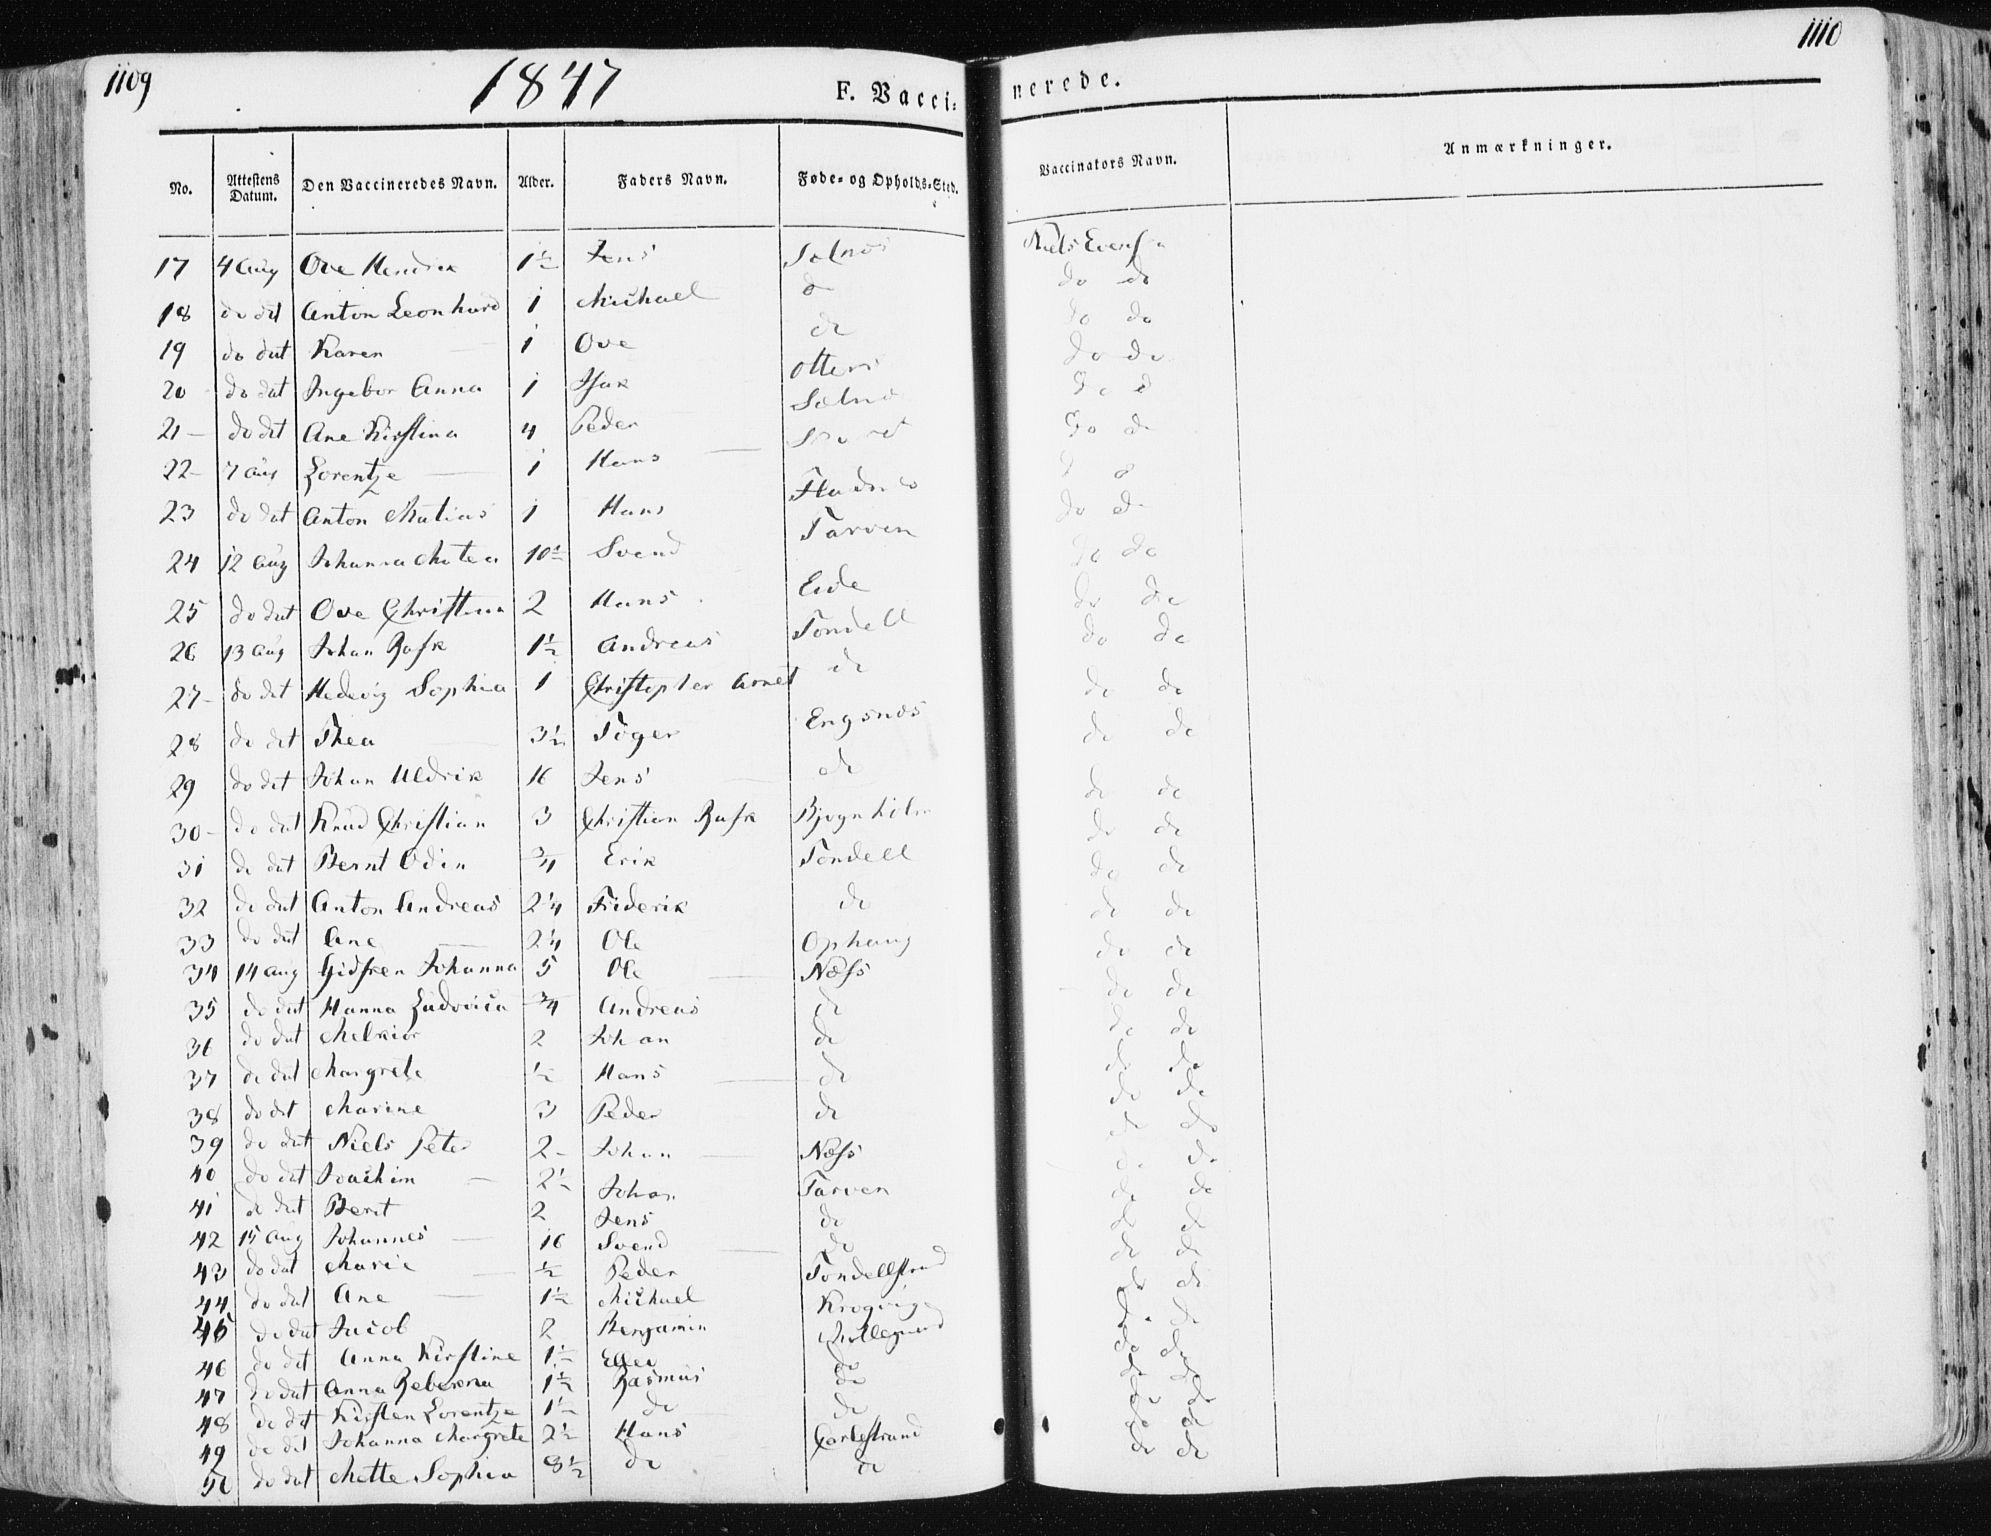 1109
1847
F. Vacci-
nerede.
1110
No. Attestens Datum. Den Vaccineredes Navn. Alder. Faders Navn. Føde- og Opholds-Sted. Vaccinators Navn. Anmærkninger.
17 4 Aug Ove Hendrik 1½ Jens Solnøs Niels
18 do dat Anton Leonhard 1 Michael do do
19 do dat Karen 1 Ove do do do
20 do dat Ingebor Anna 1 Isak do do
21 do dat Ane Kirstina 4 Peder
22 7 Aug Lorentze 1 Hans
23 do dat Anton Matias 1 Hans
24 12 Aug Johanna Matea 10½ Svend Tarven do do
25 do dat Ove Christian 2 Hans Eide do do
26 13 Aug Johan Rask 1½ Andreas Tondell do do
27 do dat Hedevig Sophia 1 Christopher Arnet do do do
28 do dat Thea 3½ Töger Engsnæs do do
29 do dat Johan Uldrik 16 Jens do do do
30 do dat Knud Christian 3 Christian Rask do do
31 do dat Bernt Odin ¾ Erik Tondell do do
32 do dat Anton Andreas 2¼ Friderik do do do
33 do dat Ane 2¼ Ole Ophaug do do
34 14 Aug Johanna 5 Ole Næss do do
35 do dat Hanna Ludovica ¾ Andreas do do do
36 do dat Melkior 2 Johan do do do
37 do dat Margrete ½ Hans do do do
38 do dat Marine 3 Peder do do do
39 do dat Niels Peter 2 Johan Næss do do
40 do dat Joachim 2½ Johan Tarven do do
41 do dat Berit 2 Jens do do do
42 15 Aug Johannes 16 Svend do do do
43 do dat Marie ½ Peder Tondellstrand do do
44 do dat Ane 1½ Michael do do
45 do dat Jacob 2 Benjamin do do
46 do dat Anna Kirstine 1½ do do do
47 do dat Anna Rebekka 1½ Rasmus do do do
48 do dat Kirsten Lorentze 1½ do do do do
49 do dat Johanna Margrete 2½ Hans do do
50 do dat Mette Sophia 8½ do do